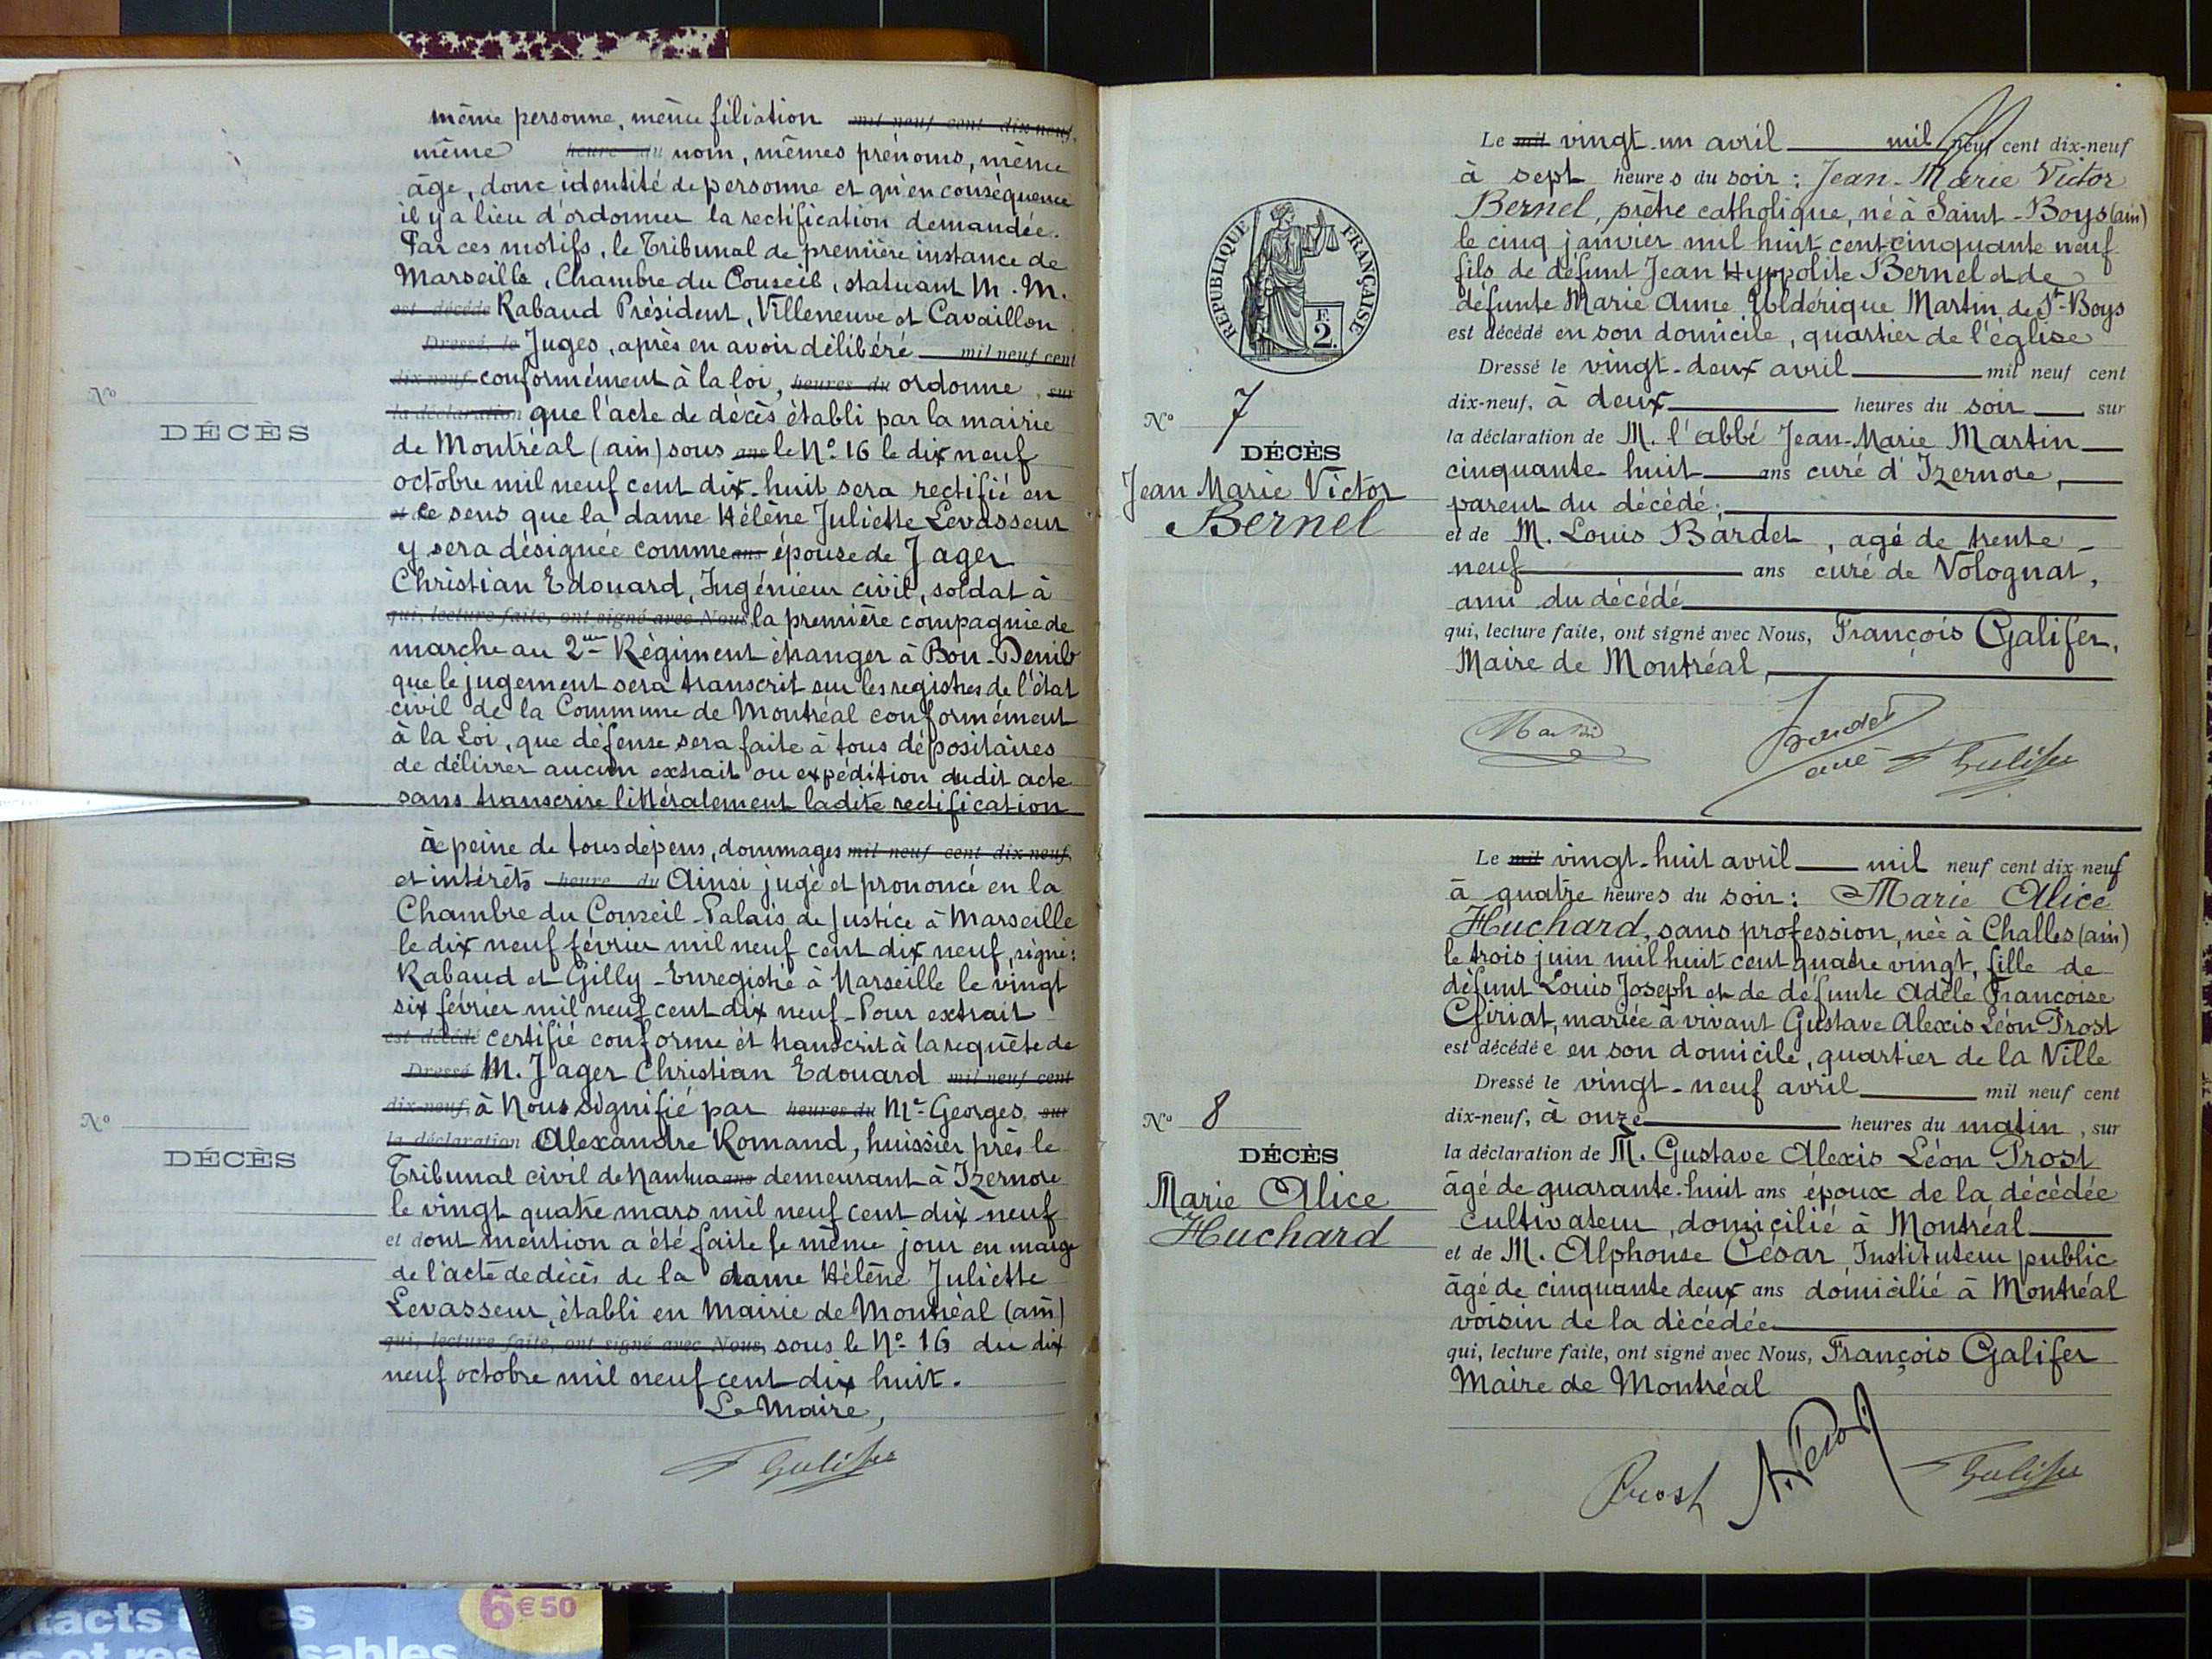 même personne, même filiation mil neuf cent dix-neuf,
même heure du nom, mêmes prénoms, même
âge, donc identité de personne et qu'en conséquence
il y a lieu d'ordonner la rectification demandée.
Par ces motifs, le Tribunal de première instance de
Marseille, Chambre du Conseil, statuant M. M.
est décédé Rabaud Président, Villeneuve et Cavaillon
Dressé, le Juges, après en avoir délibéré mil neuf cent
dix-neuf conformément à la loi, heures du ordonne, sur
la déclaration que l'acte de décès établi par la mairie
de Montréal (ain) sous ans le No 16 le dix neuf
octobre mil neuf cent dix-huit sera rectifié en
ce sens que la dame Hélène Juliette Levasseur
y sera désignée comme ans épouse de Jager
Christian Edouard, Ingénieur civil, soldat à
qui, lecture faite, ont signé avec Nous, la première compagnie de
marche au 2me Régiment étranger à Bou-Denib
que le jugement sera transcrit sur les registres de l'état
civil de la Commune de Montréal conformément
à la Loi, que défense sera faite à tous dépositaires
de délivrer aucun extrait ou expédition dudit acte
sans transcrire littéralement ladite rectification
N°
DÉCÈS
à peine de tous dépens, dommages mil neuf cent dix-neuf,
et intérêts heure du Ainsi jugé et prononcé en la
Chambre du Conseil - Palais de Justice à Marseille
le dix neuf février mil neuf cent dix neuf, signé:
Rabaud et Gilly - Enregistré à Marseille le vingt
six février mil neuf cent dix neuf - Pour extrait
est décédé certifié conforme et transcrit à la requête de
Dressé M. Jager Christian Edouard mil neuf cent
dix-neuf, à Nous signifié par heures du Me Georges, sur
la déclaration Alexandre Romand, huissier près le
Tribunal civil de Nantua ans demeurant à Izernore
le vingt quatre mars mil neuf cent dix-neuf
et dont mention a été faite le même jour en marge
de l'acte de décès de la dame Hélène Juliette
Levasseur, établi en Mairie de Montréal (ain)
qui, lecture faite, ont signé avec Nous, sous le No 16 du dix
neuf octobre mil neuf cent dix huit.
Le Maire,
F Galifer
N°
DÉCÈS
RÉPUBLIQUE FRANÇAISE
F.
2.
N° 7
DÉCÈS
Jean Marie Victor
Bernel
Le mil vingt-un avril mil neuf cent dix-neuf
à sept heures du soir: Jean-Marie Victor
Bernel, prêtre catholique, né à Saint-Boys (ain)
le cinq janvier mil huit cent cinquante neuf
fils de défunt Jean Hyppolite Bernel et de
défunte Marie Anne Uldérique Martin, de St-Boys
est décédé en son domicile, quartier de l'église
Dressé le vingt-deux avril mil neuf cent
dix-neuf, à deux heures du soir sur
la déclaration de M. l'abbé Jean-Marie Martin
cinquante-huit ans curé d'Izernore,
parent du décédé;
et de M. Louis Bardet, agé de trente-
neuf ans curé de Volognat,
ami du décédé
qui, lecture faite, ont signé avec Nous, François Galifer,
Maire de Montréal,
Martin
Bardet
curé
F Galifer
N° 8
DÉCÈS
Marie Alice
Huchard
Le mil vingt-huit avril mil neuf cent dix-neuf
à quatre heures du soir: Marie Alice
Huchard, sans profession, née à Challes (ain)
le trois juin mil huit cent quatre vingt, fille de
défunt Louis Joseph et de défunte Adèle Françoise
Giriat, mariée à vivant Gustave Alexis Léon Prost
est décédée en son domicile, quartier de la Ville
Dressé le vingt-neuf avril mil neuf cent
dix-neuf, à onze heures du matin, sur
la déclaration de M. Gustave Alexis Léon Prost
âgé de quarante-huit ans époux de la décédée
cultivateur, domicilié à Montréal
et de M. Alphonse César Instituteur public
âgé de cinquante deux ans domicilié à Montréal
voisin de la décédée
qui, lecture faite, ont signé avec Nous, François Galifer
Maire de Montréal
Prost
A. César
F Galifer
6€50